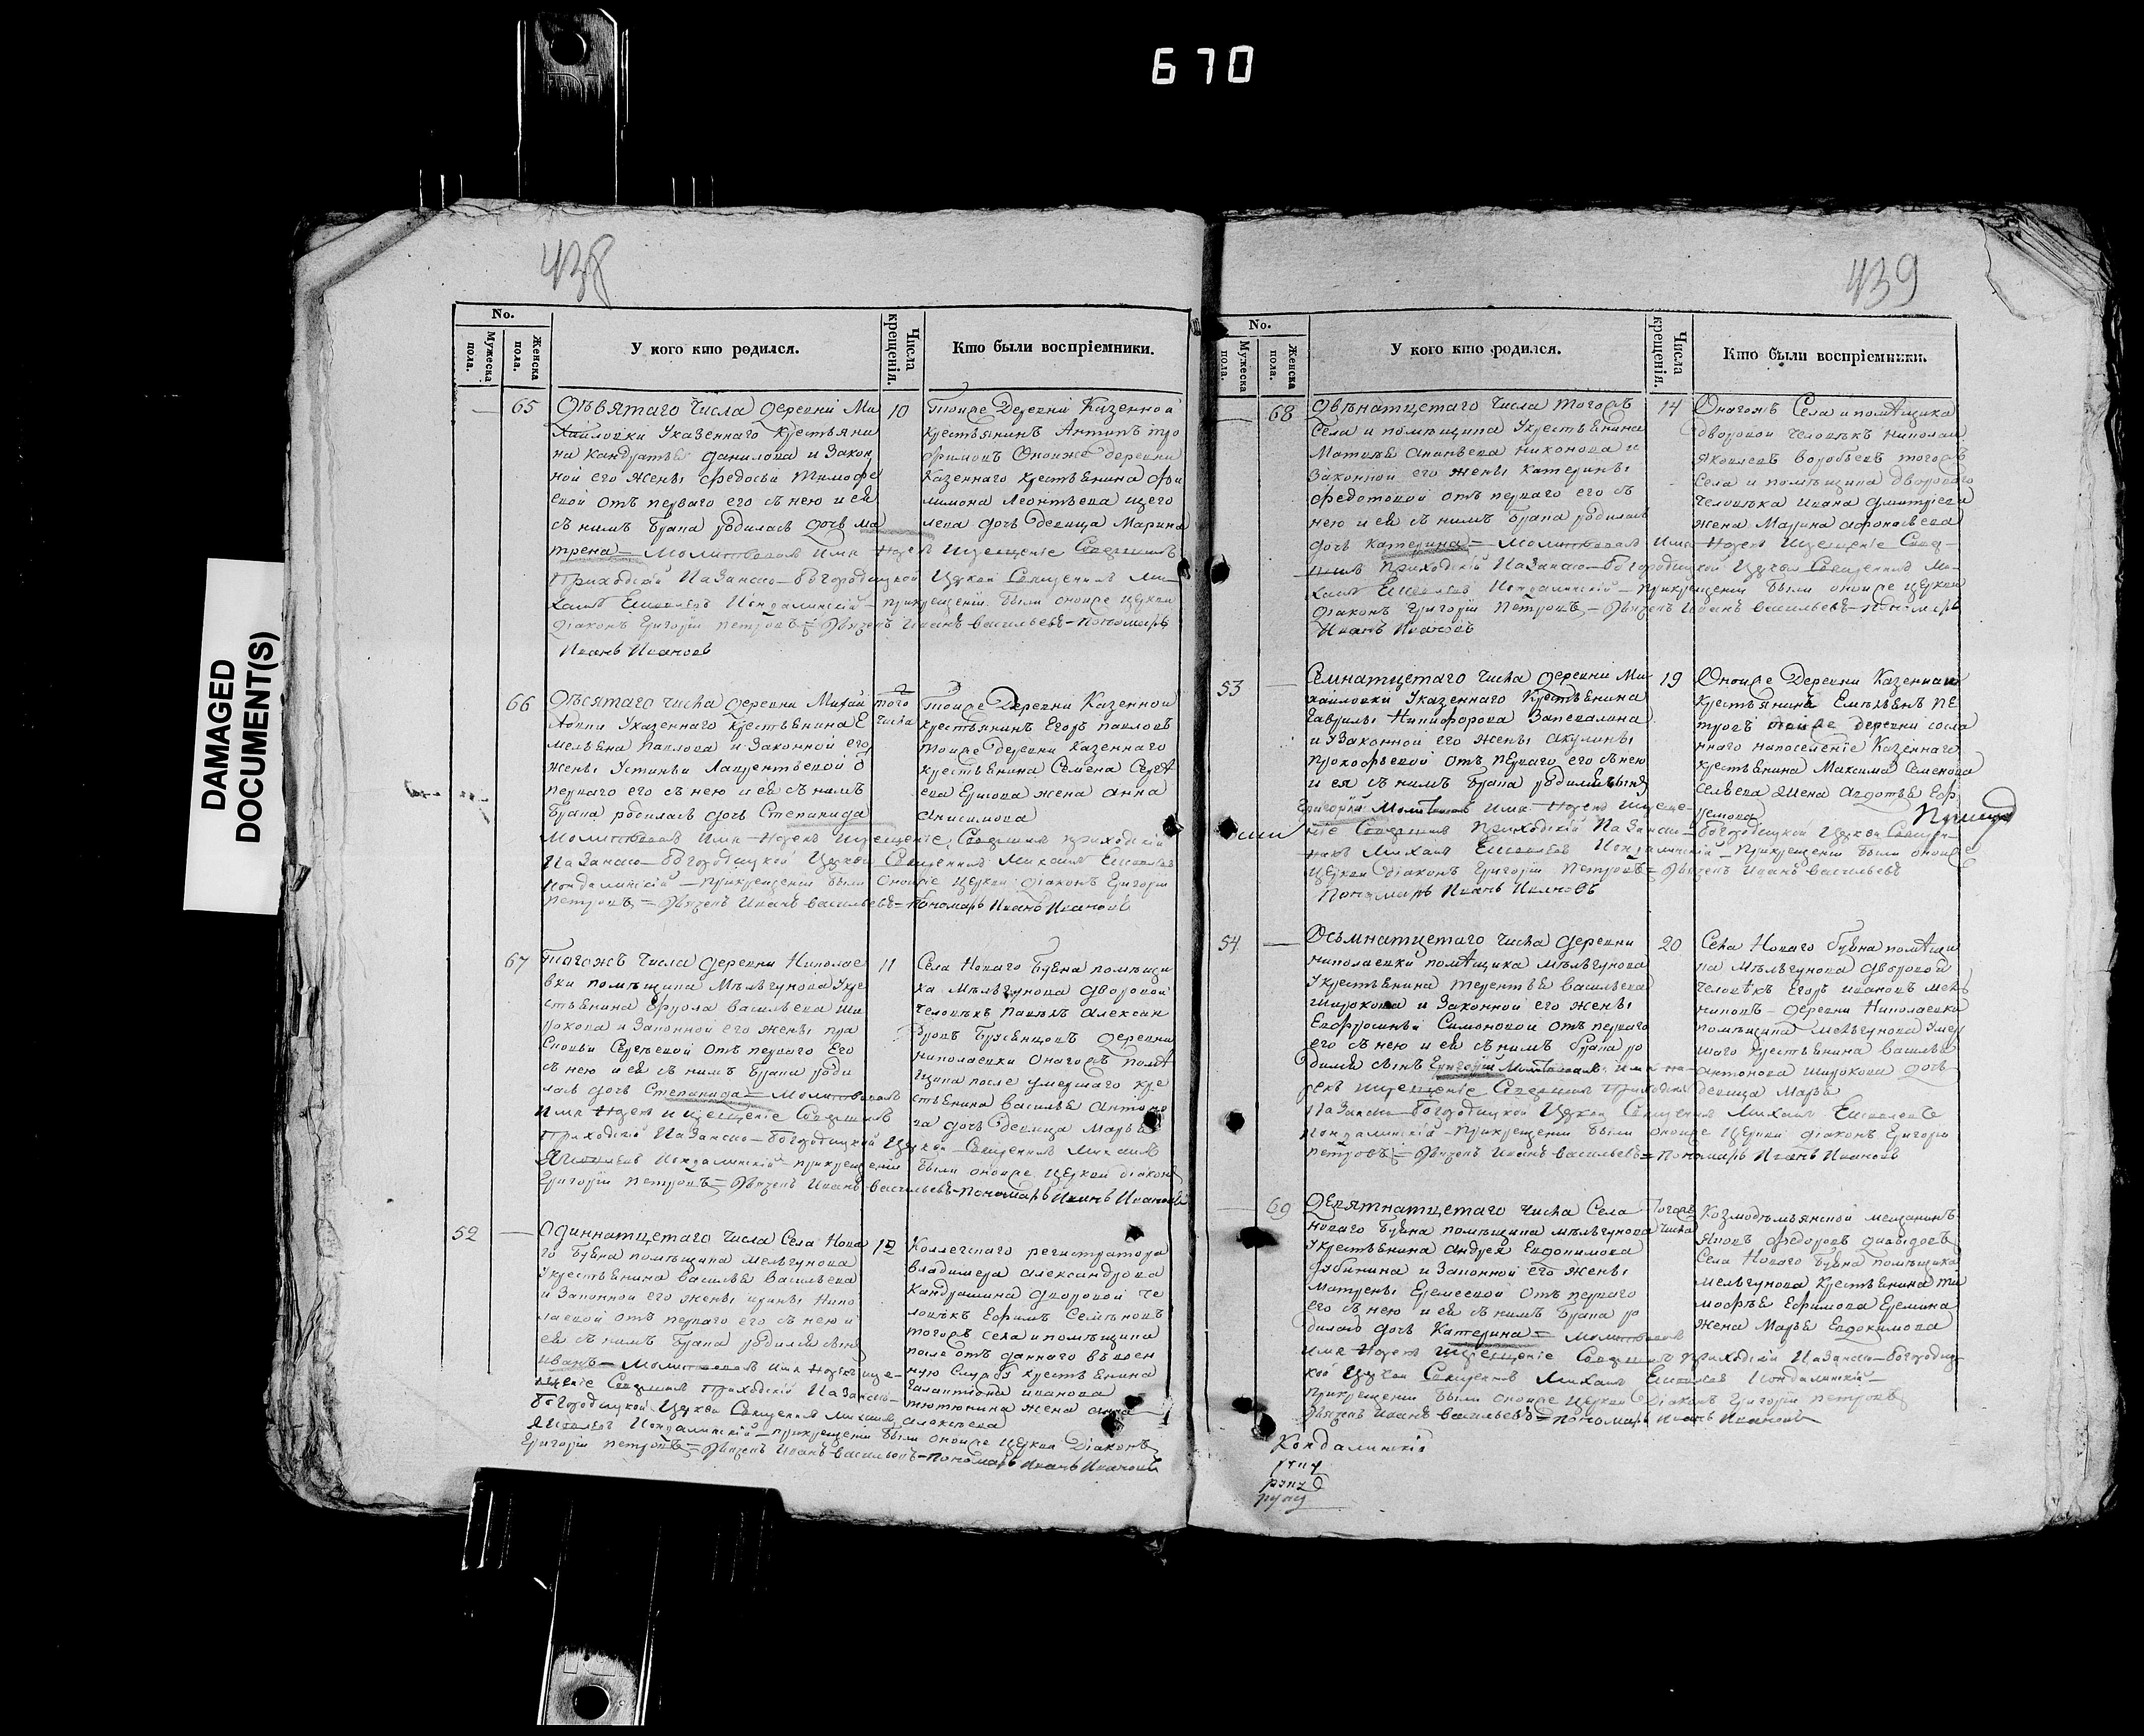 670
DAMAGED
DOCUMENT(S)
438
No.
Мужеска пола.
Женска пола.
У кого кто родился.
Числа крещенія.
Кто были воспріемники.
65
Девятаго числа деревни Ми
хайловки Указеннаго крестьяни
на Кандратья Данилова и закон
ной его жены Федосьи Тимофе
евой отъ перваго его съ нею и ея
съ нимъ брака родилась дочь Ма
трена = Молитвовалъ имя нарекъ икрещеніе Совершилъ
Приходскій Казанско-богородицкой Церкви Священникъ Ми-
хаилъ Кондалинскій - прикрещеніи были оноиже церкви
діаконъ Григорій Петровъ = Дьячекъ Иванъ Васильевъ - Пономарь
Иванъ Ивановъ
10
Тоиже Деревни Казенной
крестьянинъ Антипъ Тро
фимовъ Оноиже деревни
Казеннаго крестьянина Фи
лимона Леонтьева
дочь девица Марина
66
Десятаго числа деревни Михай
ловки Указеннаго крестьянина Е
мельяна Павлова и Законной его
жены Устиньи Лаврентьевой о
перваго его съ нею и ея съ нимъ
брака родилась дочь Степанида
Молитвовалъ имя нарекъ икрещеніе Совершилъ приходскій
Казанско-богородицкой Церкви Священникъ Михаилъ
Кондалинскій - прикрещеніи были Оноиже Церкви діаконъ Григорій
Петровъ = Дьячекъ Иванъ Васильевъ = пономарь Иванъ Ивановъ
того
числа
Тоиже Деревни Казенной
крестьянинъ Егоръ Павловъ
Тоиже деревни Казеннаго
крестьянина Семена Серге
ева жена Анна
Анисимова
67
Тогожъ числа деревни Николае
вки помещика Мельгунова Укре
стьянина Фрола Васильева Ши
рокова и Законной его жены Пра
сковьи Сергеевой отъ перваго Его
съ нею и ея съ нимъ брака роди
лась дочь Степанида = Молитвовалъ
имя нарекъ и крещеніе Совершилъ
Приходскій Казанско-Богородицкой Церкви Священникъ Михаилъ
Кондалинскій - прикрещеніи были оноиже церкви діаконъ
Григорій Петровъ = Дьячекъ Иванъ Васильевъ - Пономарь Иванъ Ивановъ
11
Села Новаго Буяна помещи
ка Мельгунова дворовой
человекъ Павелъ Алексан
дровъ деревни
Николаевки Онагожъ поме
щика после умершаго кре
стьянина Василья Антоно
ва дочь девица Марья
52
Одиннатцетаго числа Села Нова
го Буяна помещика Мельгунова
Укрестьянина Василья Васильева
и Законной его жены Ирины Нико
лаевой отъ перваго его съ нею и
ея съ нимъ брака родился сынъ
Иванъ - Молитвовалъ имя нарекъ икре-
щеніе Совершилъ Приходскій Казанско-
Богородицкой Церкви Священникъ Михаилъ
Кондалинскій - прикрещеніи были оноиже Церкви Діаконъ
Григорій Петровъ = Дьячекъ Иванъ Васильевъ - Пономарь Иванъ Ивановъ
12
Коллегскаго регистратора
Владимера Александрова
Кандрашина дворовой че
ловекъ Ефимъ Семеновъ
тогожъ села и помещика
после отъ даннаго въ воен
ную Службу крестьянина
Галактиона Иванова
Тютюкина жена Анна
Алексеева
439
No.
Мужеска пола.
Женска пола.
У кого кто родился.
Числа крещенія.
Кто были воспріемники.
68
Двенатцетаго числа тогожъ
Села и помещика Укрестьянина
Матвея Ананьева Никонова и
Законной его жены Катерины
Федотовой отъ перваго его съ
нею и ея съ нимъ брака родилась
дочь Катерина = Молитвовалъ имя нарекъ икрещеніе Сове-
ршилъ Приходскій Казанско-Богородицкой Церкви Священникъ Ми-
хаилъ Кондалинскій - прикрещеніи были оноиже церкви
діаконъ Григорій Петровъ - Дьячекъ Иванъ Васильевъ - Пономарь
Иванъ Ивановъ
14
Онагожъ Села и помещика
дворовой человекъ Николай
Яковлевъ Воробьевъ тогожъ
Села и помещика дворового
человека Ивана Дмитріева
жена Марина Афонасьева
53
Семнатцетаго числа деревни Ми
хайловки Указеннаго Крестьянина
Гаврилы Никифорова Запевалина
и Узаконной его жены Акулины
Прокофьевой отъ перваго его съ нею
и ея съ нимъ брака родился сынъ
Григорій Молитвовалъ имя нарекъ икреще-
ніе Совершилъ Приходскій Казанско-Богородицкой Церкви Священ-
никъ Михаилъ Кондалинскій - прикрещеніи были оноиже
Церкви діаконъ Григорій Петровъ = Дьячекъ Иванъ Васильевъ
Пономарь Иванъ Ивановъ
19
Оноиже Деревни Казенной
Крестьянинъ Емельянъ Пе
тровъ оноиже деревни сосла
ннаго напоселеніе Казеннаго
крестьянина Максима Семенова
жена Авдотья
54
Осьмнатцетаго числа деревни
Николаевки помещика Мельгунова
Укрестьянина Терентья Васильева
Широкова и Законной его жены
Евфросиньи Симоновой отъ перваго
его съ нею и ея съ нимъ брака ро
дился сынъ Григорій Молитвовалъ имя на-
рекъ икрещеніе Совершилъ Приходскій
Казанско-Богородицкой Церкви Священникъ Михаилъ
Кондалинскій - Прикрещеніи были оноиже Церкви діаконъ Григорій
Петровъ = Дьячекъ Иванъ Васильевъ = Пономарь Иванъ Ивановъ
20
Села Новаго Буяна помещи
ка Мельгунова дворовой
человекъ Егоръ Ивановъ
деревни Николаевки
помещика Мельгунова Умер
шаго крестьянина Василья
Антонова Широкова дочь
девица Марья
69
Девятнатцетаго числа Села
Новаго Буяна помещика Мельгунова
Укрестьянина Андрея Евдокимова
и Законной его жены
Матрены Еремеевой отъ перваго
его съ нею и ея съ нимъ брака ро
дилась дочь Катерина = Молитвовалъ
имя нарекъ икрещеніе Совершилъ приходскій Казанско-богородиц
кой Церкви Священникъ Михаилъ Кондалинскій -
Прикрещеніи были оноиже Церкви Діаконъ Григорій Петровъ
Дьячекъ Иванъ Васильевъ = пономарь Иванъ Ивановъ
тогожъ
числа
Козмодемьянской мещанинъ
Яковъ Федоровъ Давыдовъ
Села Новаго Буяна помещика
Мельгунова Крестьянина Ти
мофея Ефимова Еремина
жена Марья Евдокимова
Кондалинскіе